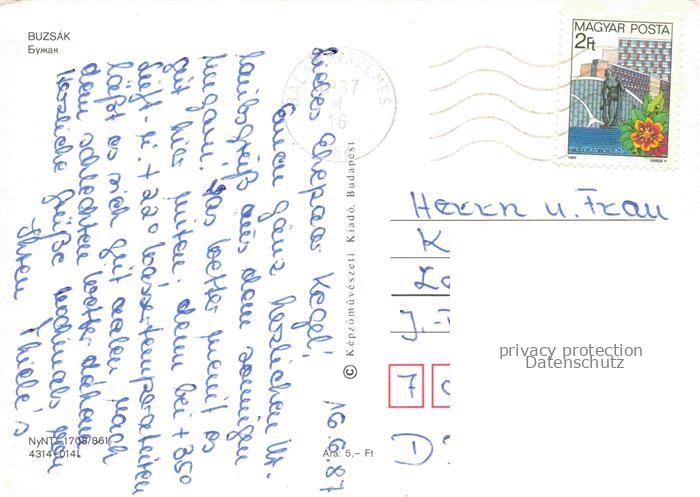 BUZSÁK
Бужак
16.6.87
Liebes Ehepaar Kegel!
Einen ganz herzlichen Ur-
laubsgruß aus dem sonnigen
Ungarn. Das Wetter meint es
gut hier mit en, denn bei +35°
Luft- u. +22° Wassertemperaturen
läßt es sich gut aalen nach
dem schlechten Wetter daheim
Herzliche Grüße nochmals von
Ihren Thiele's
NyNTV 1708/861
4314-0141
Ára: 5,– Ft
© Képzőművészeti Kiadó, Budapest
BALATONSZEMES
16
MAGYAR POSTA
2Ft
1983
VARGA P.
Herrn u. Frau
K
J.-
7
D
privacy protection
Datenschutz